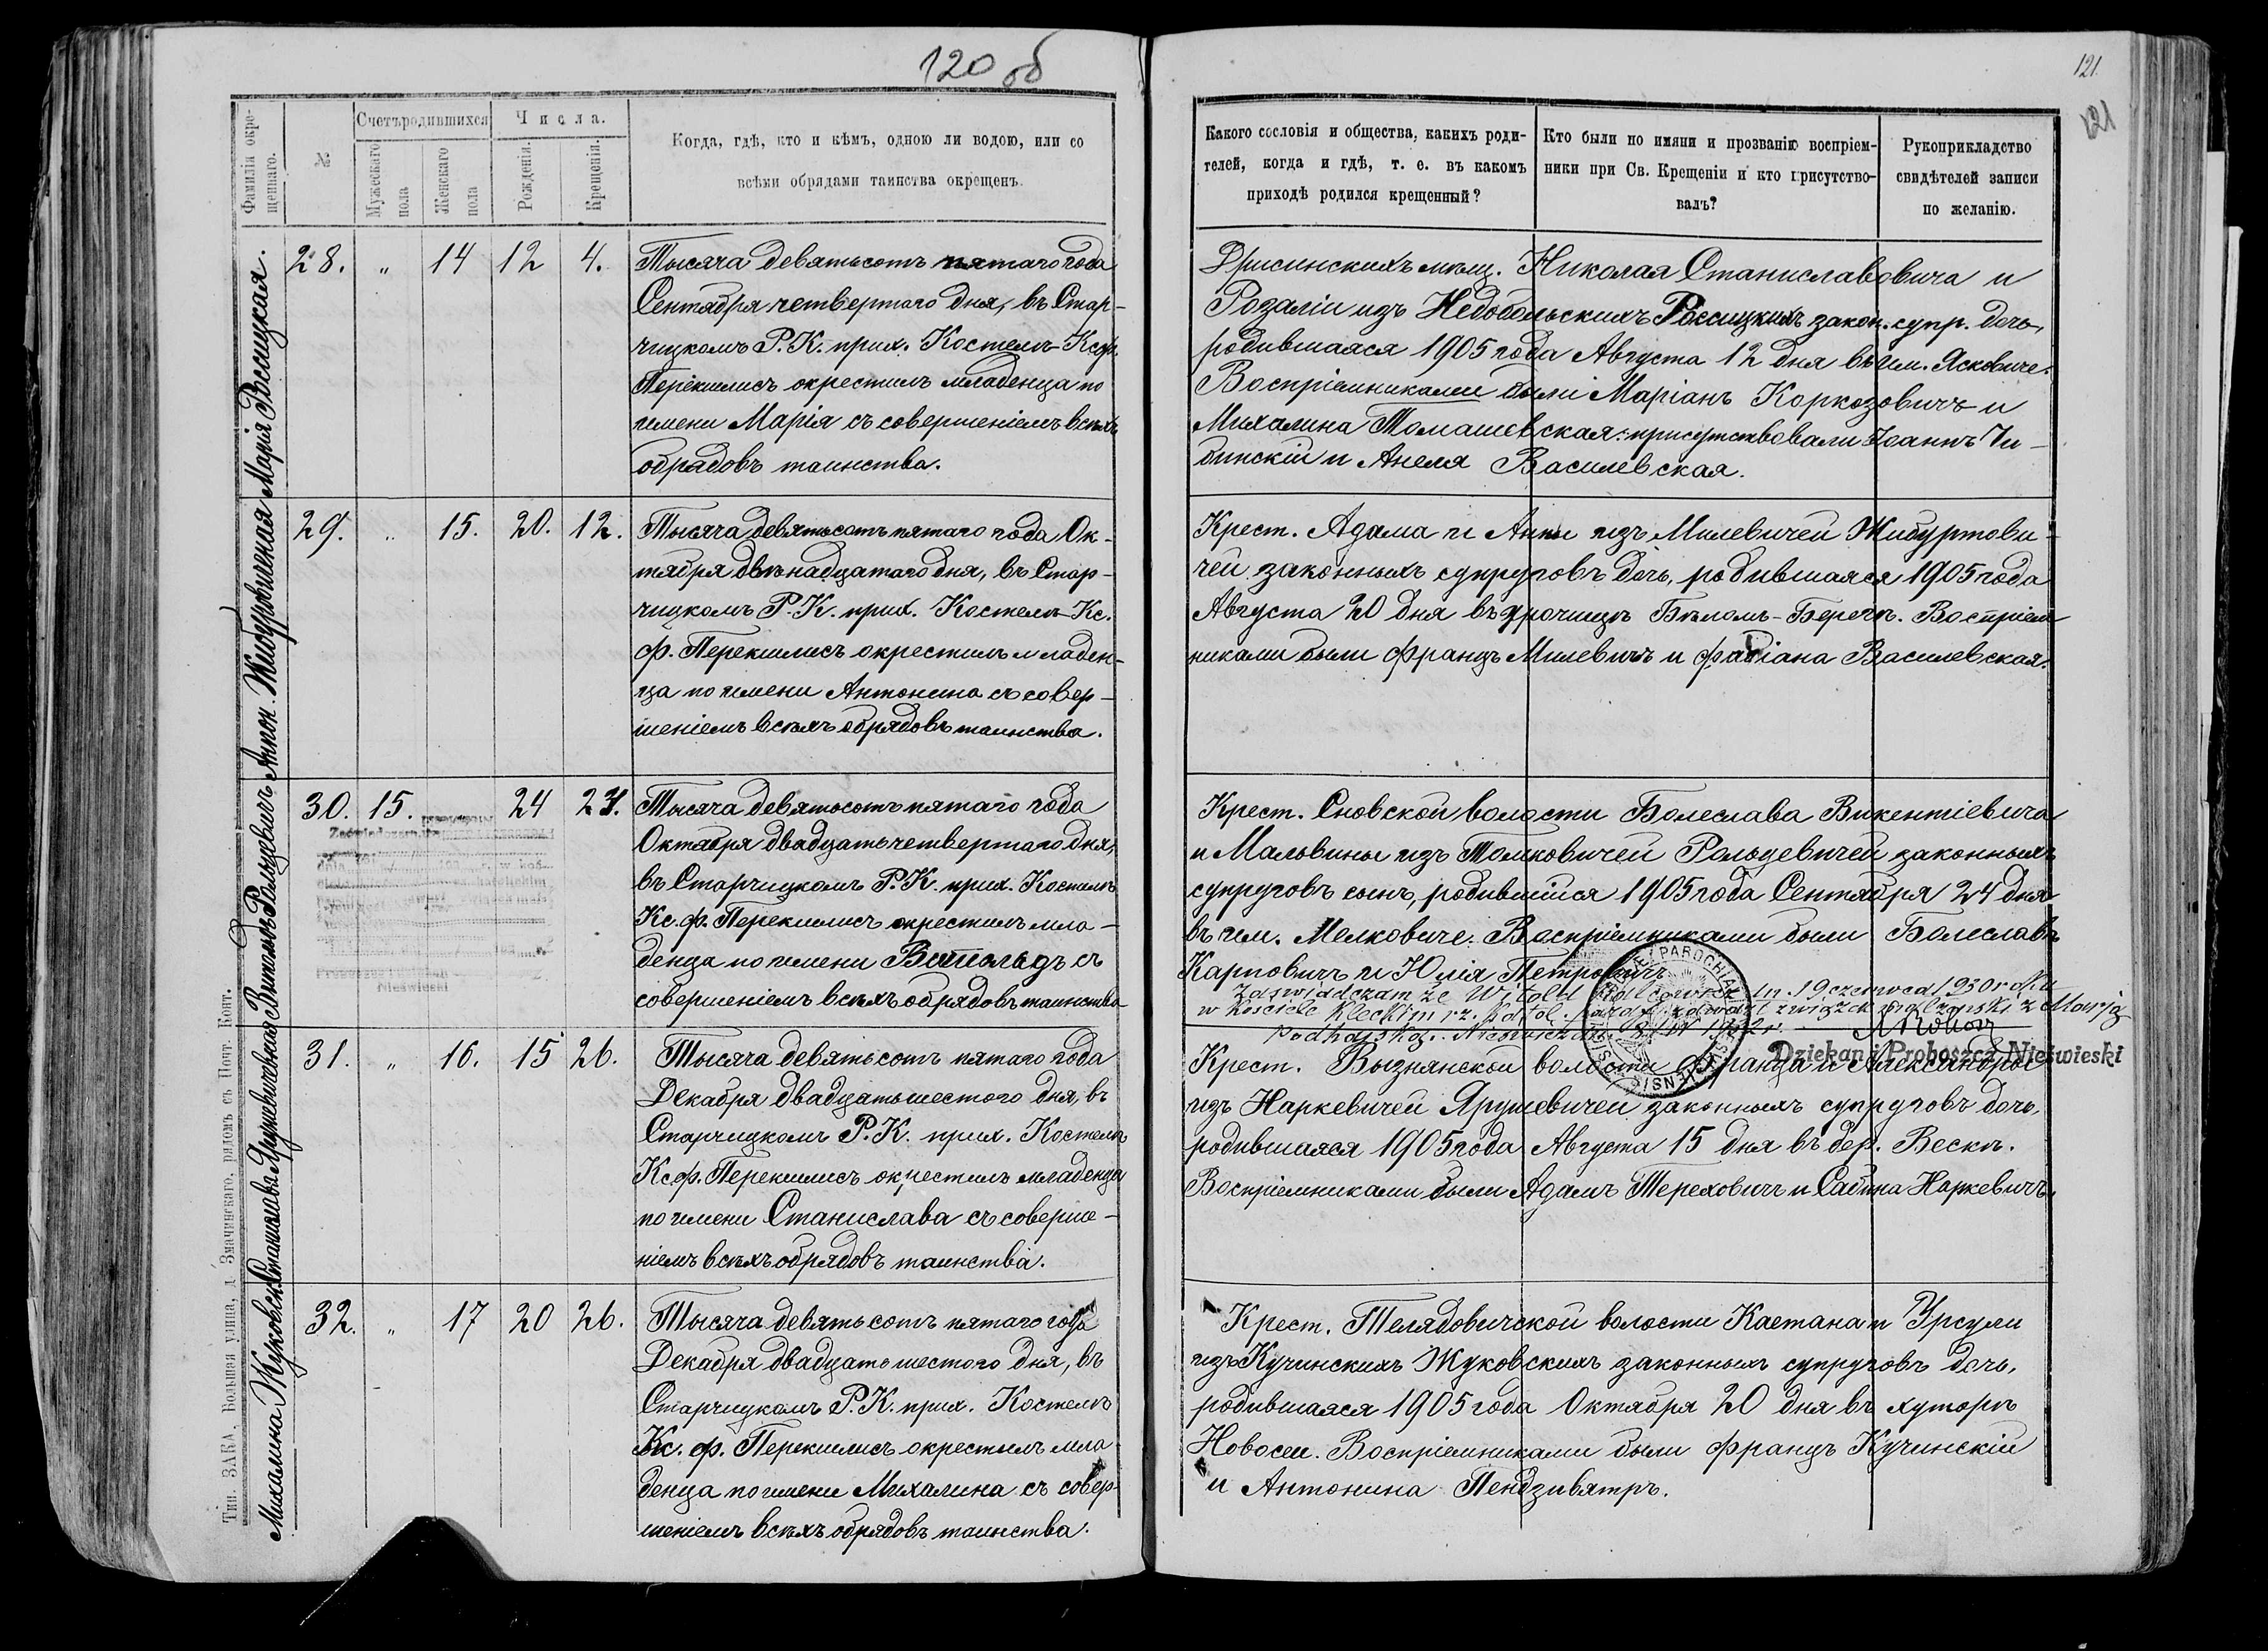 120 об
Фамилія окре-
щеннаго.
№
Счетъ родившихся
Мужескаго
пола
Женскаго
пола
Числа.
Рожденія.
Крещенія.
Когда, гдѣ, кто и кѣмъ, одною ли водою, или со
всѣми обрядами таинства окрещенъ.
Марія Россицкая.
28. " 14 12 4.
Тысяча девятьсотъ пятаго года
Сентября четвертаго дня, въ Стар-
чицкомъ Р. К. прих. Костелѣ Кс. ф.
Перекшлисъ окрестилъ младенца по
имени Марія съ совершеніемъ всѣхъ
обрядовъ таинства.
29. " 15. 20. 12.
Тысяча девятьсотъ пятаго года Ок-
тября двѣнадцатаго дня, въ Стар-
чицкомъ Р. К. прих. Костелѣ Кс.
ф. Перекшлисъ окрестилъ младен-
ца по имени Антонина съ совер-
шеніемъ всѣхъ обрядовъ таинства.
Витольдъ Рольцевичъ
30. 15. 24 24.
Nieświeski
Тысяча девятьсотъ пятаго года
Октября двадцать четвертаго дня,
въ Старчицкомъ Р. К. прих. Костелѣ
Кс. ф. Перекшлисъ окрестилъ мла-
денца по имени Витольдъ съ
совершеніемъ всѣхъ обрядовъ таинства
31. " 16. 15 26.
Тысяча девятьсотъ пятаго года
Декабря двадцать шестого дня, въ
Старчицкомъ Р. К. прих. Костелѣ
Кс. ф. Перекшлисъ окрестилъ младенца
по имени Станислава съ соверше-
ніемъ всѣхъ обрядовъ таинства.
Михалина Жуковская
32. " 17 20 26.
Тысяча девятьсотъ пятаго года
Декабря двадцать шестого дня, въ
Старчицкомъ Р. К. прих. Костелѣ
Кс. ф. Перекшлисъ окрестилъ мла-
денца по имени Михалина съ совер-
шеніемъ всѣхъ обрядовъ таинства.
121.
121
Какого сословія и общества, какихъ роди-
телей, когда и гдѣ, т. е. въ какомъ
приходѣ родился крещенный?
Кто были по имяни и прозванію воспріем-
ники при Св. Крещеніи и кто присутство-
валъ?
Рукоприкладство
свидѣтелей записи
по желанію.
Дрисинскихъ мѣщ. Николая Станиславовича и
Розаліи изъ Недобольскихъ Россицкихъ закон. супр. дочь,
родившаяся 1905 года Августа 12 дня въ им. Ясковиче.
Воспріемниками были Маріанъ Коркозовичъ и
Михалина Томашевская: присутствовали Іоаннъ Чи-
бинскій и Анеля Василевская.
Крест. Адама и Анны изъ Милевичей Жибуртови-
чей законныхъ супруговъ дочь, родившаяся 1905 года
Августа 20 дня въ урочищѣ Бѣломъ-Берегѣ. Воспріем
никами были Францъ Милевичъ и Фабіана Василевская.
Крест. Сновской волости Болеслава Викентіевича
и Мальвины изъ Томковичей Рольцевичей законныхъ
супруговъ сынъ, родившійся 1905 года Сентября 24 дня
въ им. Мелковиче. Воспріемниками были Болеславъ
Карповичъ и Юлія Петровичъ
Zaświadczam że Witold Rolcewicz dn. 19 czerwca 1930 roku
w Kościele Kleckim rz. katol. paraf. zawarł związek małżeński z Marją
Podhajską. Nieśwież dn.
Dziekan i Proboszcz Nieświeski
Крест. Вызнянской волости Франца и Александры
изъ Наркевичей Ярушевичей законныхъ супруговъ дочь,
родившаяся 1905 года Августа 15 дня въ дер. Вескѣ.
Воспріемниками были Адамъ Тереховичъ и Сабина Наркевичъ.
Крест. Телядовичской волости Каетана и Урсули
изъ Кучинскихъ Жуковскихъ законныхъ супруговъ дочь,
родившаяся 1905 года Октября 20 дня въ хуторѣ
Новосеи. Воспріемниками были Францъ Кучинскій
и Антонина Пендзивятръ.